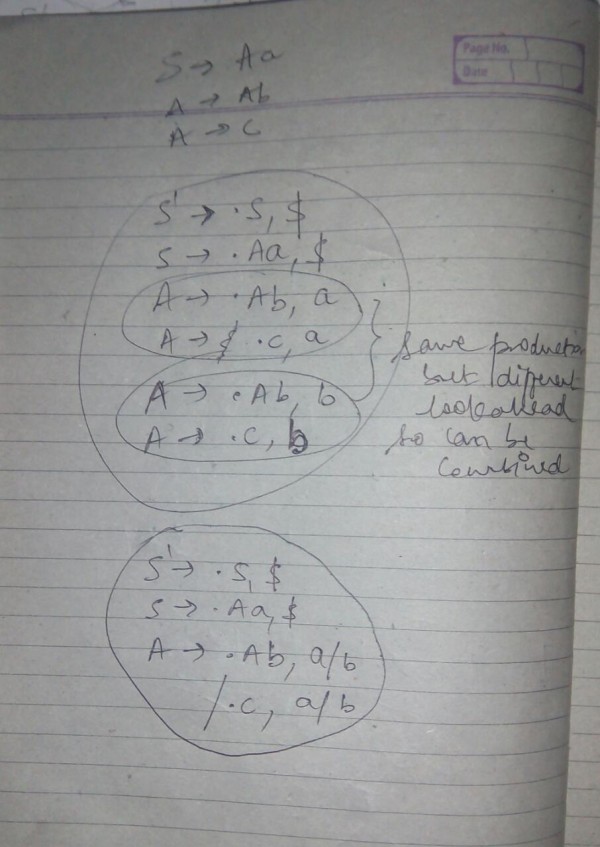 Page No.
Date
S → Aa
A → Ab
A → c
S' → .S, $
S → .Aa, $
A → .Ab, a
A → .c, a
A → .Ab, b
A → .c, b
same production
but different
lookahead
so can be
combined
S' → .S, $
S → .Aa, $
A → .Ab, a/b
/.c, a/b